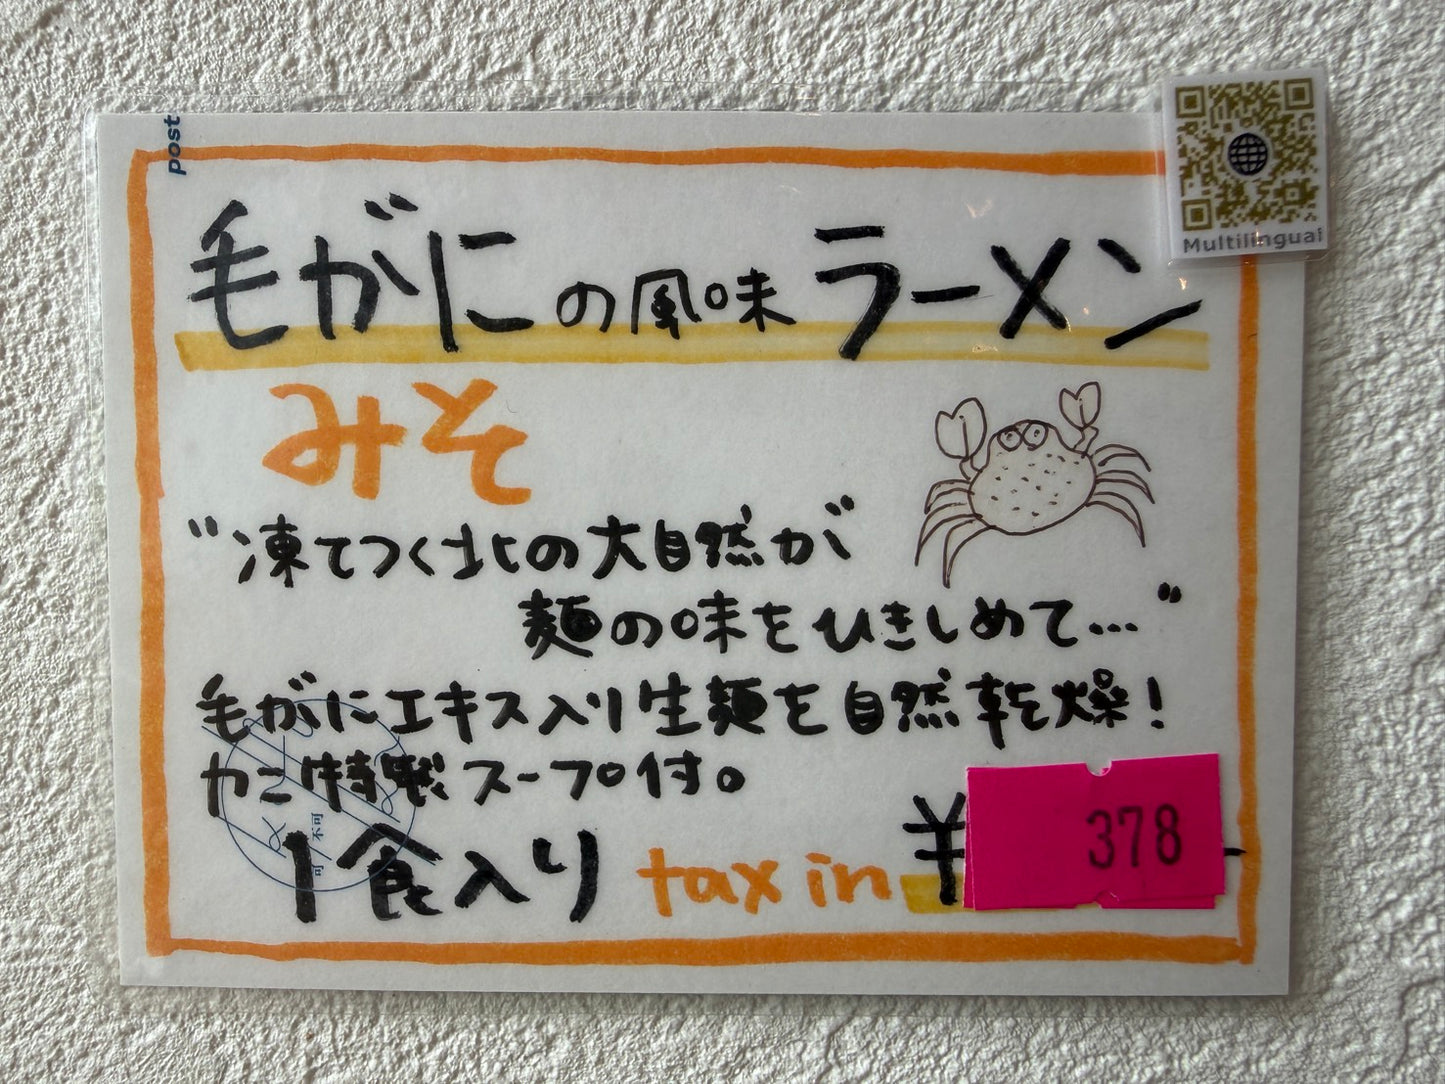 post
Multilingual
毛がにの風味ラーメン
みそ
"凍てつく北の大自然が
麺の味をひきしめて…"
毛がにエキス入り生麺を自然乾燥!
カニ特製スープ付。
1食入り tax in ¥378
不可
可